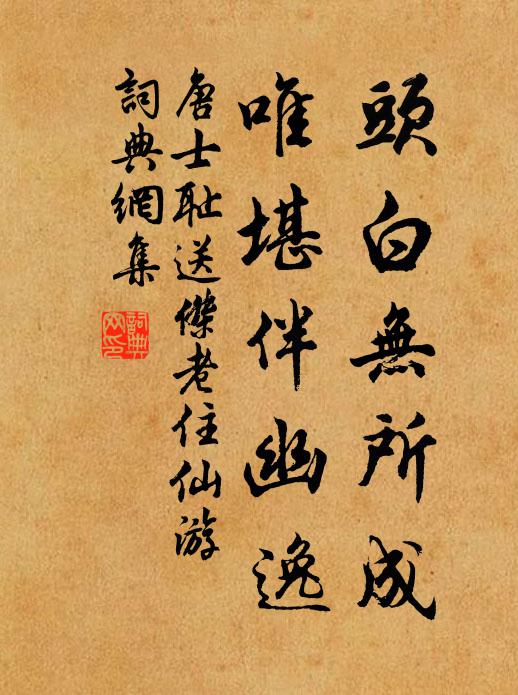 頭白無所成
唯堪伴幽逸
唐士耻送傑老住仙游
詞典網集
詞典網印